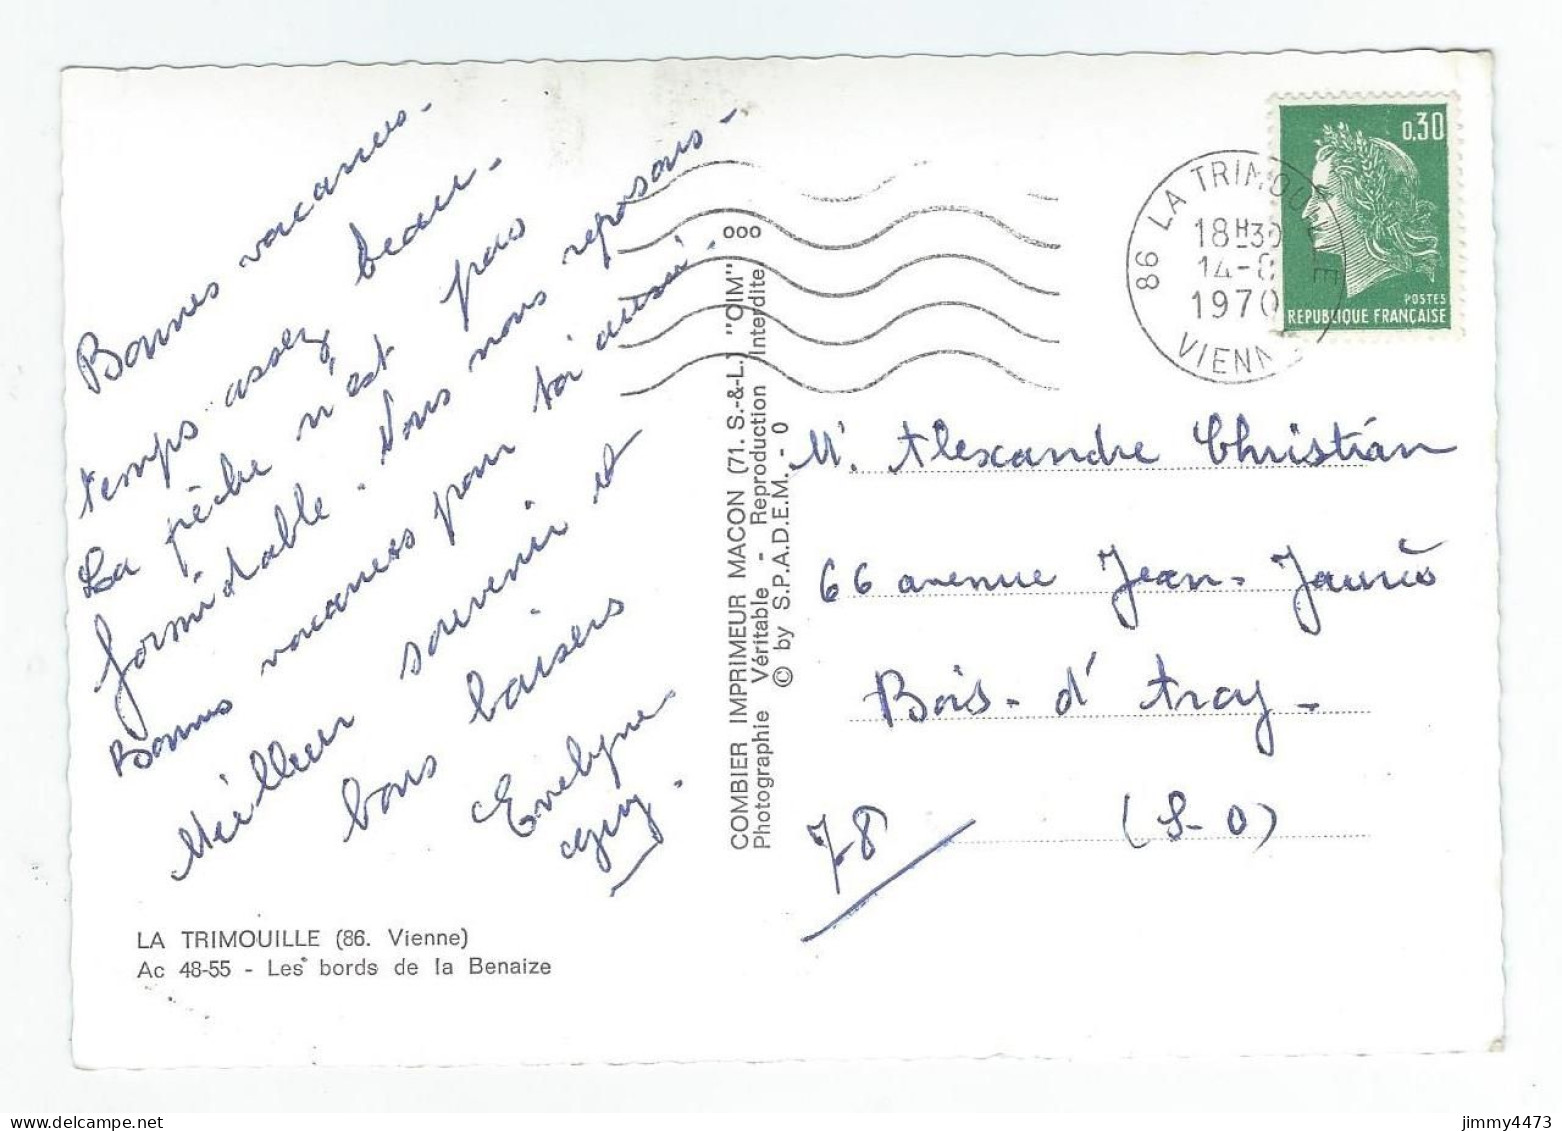 Bonnes vacances -
temps assez beau -
La pêche n'est pas
formidable. Nous nous reposons -
Bonnes vacances pour toi aussi.
Meilleur souvenir et
bons baisers
Evelyne
Guy.
LA TRIMOUILLE (86. Vienne)
Ac 48-55 - Les bords de la Benaize
COMBIER IMPRIMEUR MACON (71. S.-&-L.) "CIM"
Photographie Véritable - Reproduction Interdite
© by S.P.A.D.E.M. - 0
86 LA TRIMOUILLE
18H30
14-8
1970
VIENNE
0,30
POSTES
REPUBLIQUE FRANÇAISE
M. Alexandre Christian
66 avenue Jean-Jaurès
Bois-d'Arcy -
78 (S-O)
jimmy4473